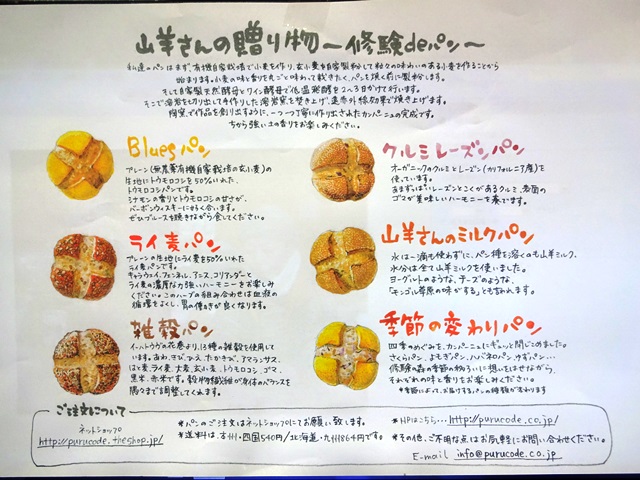 山羊さんの贈り物〜修験deパン〜
私達のパンはまず、有機自家栽培で小麦を作り、玄小麦を自家製粉して粒々の味わいのある小麦を作ることから
始まります。小麦の味と香りを丸ごと味わって戴きたく、パンを焼く前に製粉します。
そして自家製天然酵母とワイン酵母で低温発酵を2〜3日かけて行います。
そこで溶岩を切り出して手作りした溶岩窯を焚き上げ、遠赤外線効果で焼き上げます。
陶窯で作品を創り出すように、一つ一つ丁寧に作り出されたカンパーニュの完成です。
ちから強い土の香りをお楽しみください。
Bluesパン
プレーン(無農薬有機自家栽培の玄小麦)の
生地にトウモロコシを50%いれた、
トウモロコシパンです。
シナモンの香りとトウモロコシの甘さが、
バーボンウィスキーに好く合います。
ぜひブルースを聴きながら食してください。
ライ麦パン
プレーンの生地にライ麦を50%いれた
ライ麦パンです。
キャラウェイ、フェンネル、アニス、コリアンダーと
ライ麦の濃厚な力強いハーモニーをお楽しみ
ください。このハーブの組み合わせは血液の
循環をよくし、胃の働きが良くなります。
雑穀パン
イーハトーヴの花巻より、13種の雑穀を使用して
います。あわ、きび、ひえ、たかきび、アマランサス、
はと麦、ライ麦、大麦、玄小麦、トウモロコシ、ゴマ、
黒米、赤米です。穀物繊維が身体のバランスを
隅々まで調整してくれます。
クルミレーズンパン
オーガニックのクルミとレーズン(カリフォルニア産)を
使っています。
あまずっぱいレーズンとこくがあるクルミ、表面の
ゴマが美味しいハーモニーを奏でます。
山羊さんのミルクパン
水は一滴も使わずに、パン種を溶くのも山羊ミルク、
水分は全て山羊ミルクを使いました。
ヨーグルトのような、チーズのような、
「モンゴル草原の味がする」とも言われます。
季節の変わりパン
四季のめぐみを、カンパーニュにギュッと閉じこめました。
さくらパン、よもぎパン、ハバネロパン、ゆずパン…
修験の森の季節の移ろいに想いをはせながら、
それぞれの味と香りをお楽しみください。
*季節によって、お届けするパンの種類が変わります
ご注文について
ネットショップ
http://purucode.theshop.jp/
*パンのご注文はネットショップにてお願い致します。
*送料は、本州・四国540円/北海道・九州864円です。
*HPはこちら…http://purucode.co.jp/
*その他、ご不明な点はお気軽にお問い合わせください。
E-mail info@purucode.co.jp